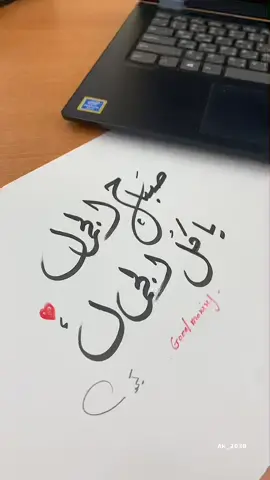 صباح الجمال
يا كل الجمال
Good morning.
AK_2030